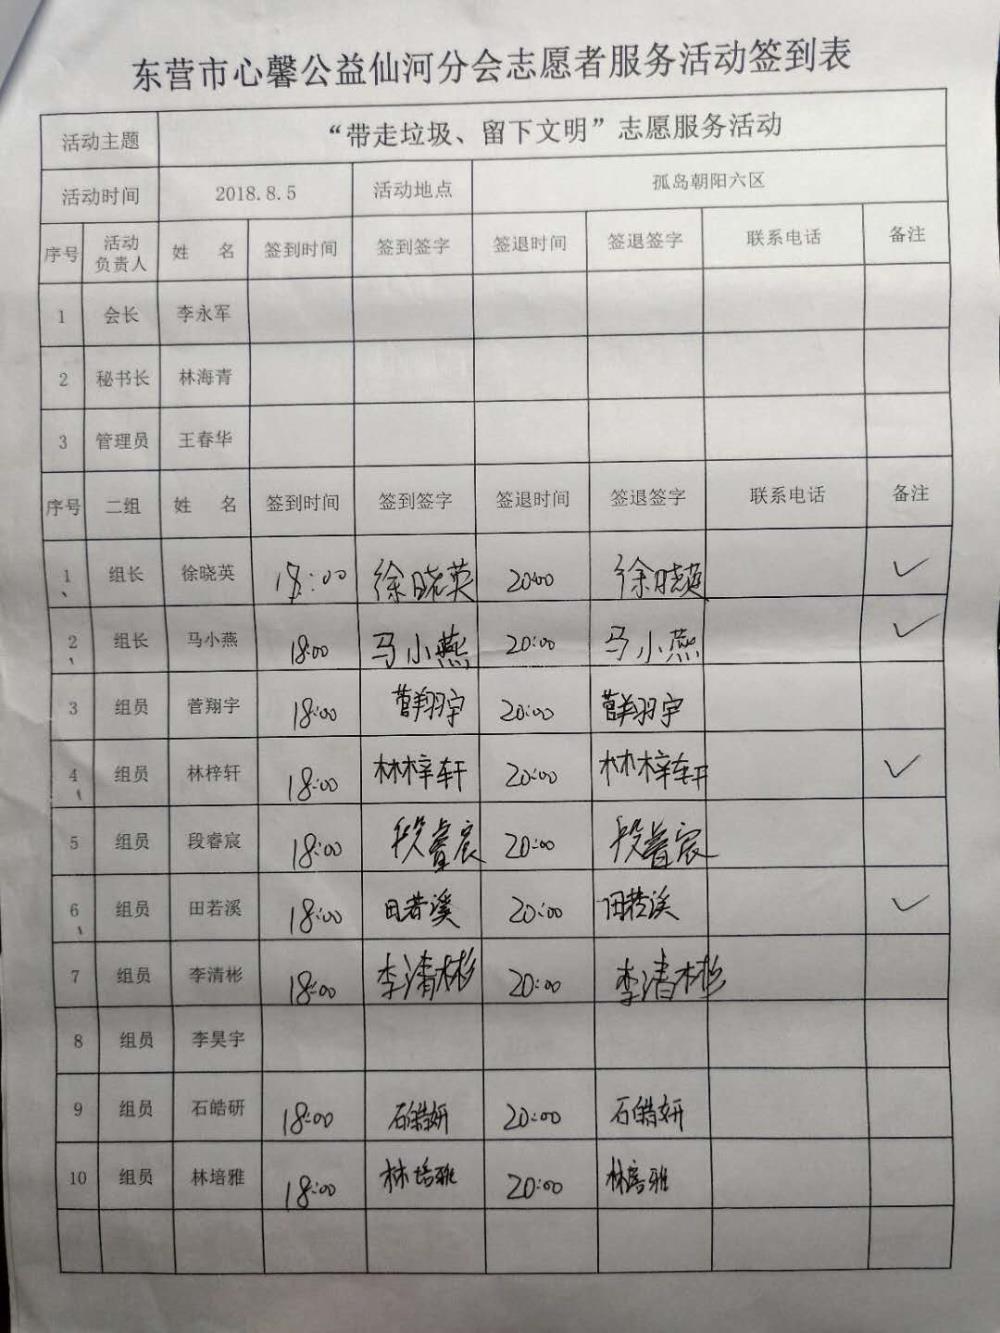 东营市心馨公益仙河分会志愿者服务活动签到表
活动主题 “带走垃圾、留下文明”志愿服务活动
活动时间 2018.8.5 活动地点 孤岛朝阳六区
序号 活动负责人 姓 名 签到时间 签到签字 签退时间 签退签字 联系电话 备注
1 会长 李永军
2 秘书长 林海青
3 管理员 王春华
序号 二组 姓 名 签到时间 签到签字 签退时间 签退签字 联系电话 备注
1、 组长 徐晓英 18:00 徐晓英 20:00 徐晓英 ✓
2、 组长 马小燕 18:00 马小燕 20:00 马小燕 ✓
3 组员 菅翔宇 18:00 菅翔宇 20:00 菅翔宇
4、 组员 林梓轩 18:00 林梓轩 20:00 林梓轩 ✓
5 组员 段睿宸 18:00 段睿宸 20:00 段睿宸
6、 组员 田若溪 18:00 田若溪 20:00 田若溪 ✓
7 组员 李清彬 18:00 李清彬 20:00 李清彬
8 组员 李昊宇
9 组员 石皓研 18:00 石皓妍 20:00 石皓妍
10 组员 林培雅 18:00 林培雅 20:00 林培雅